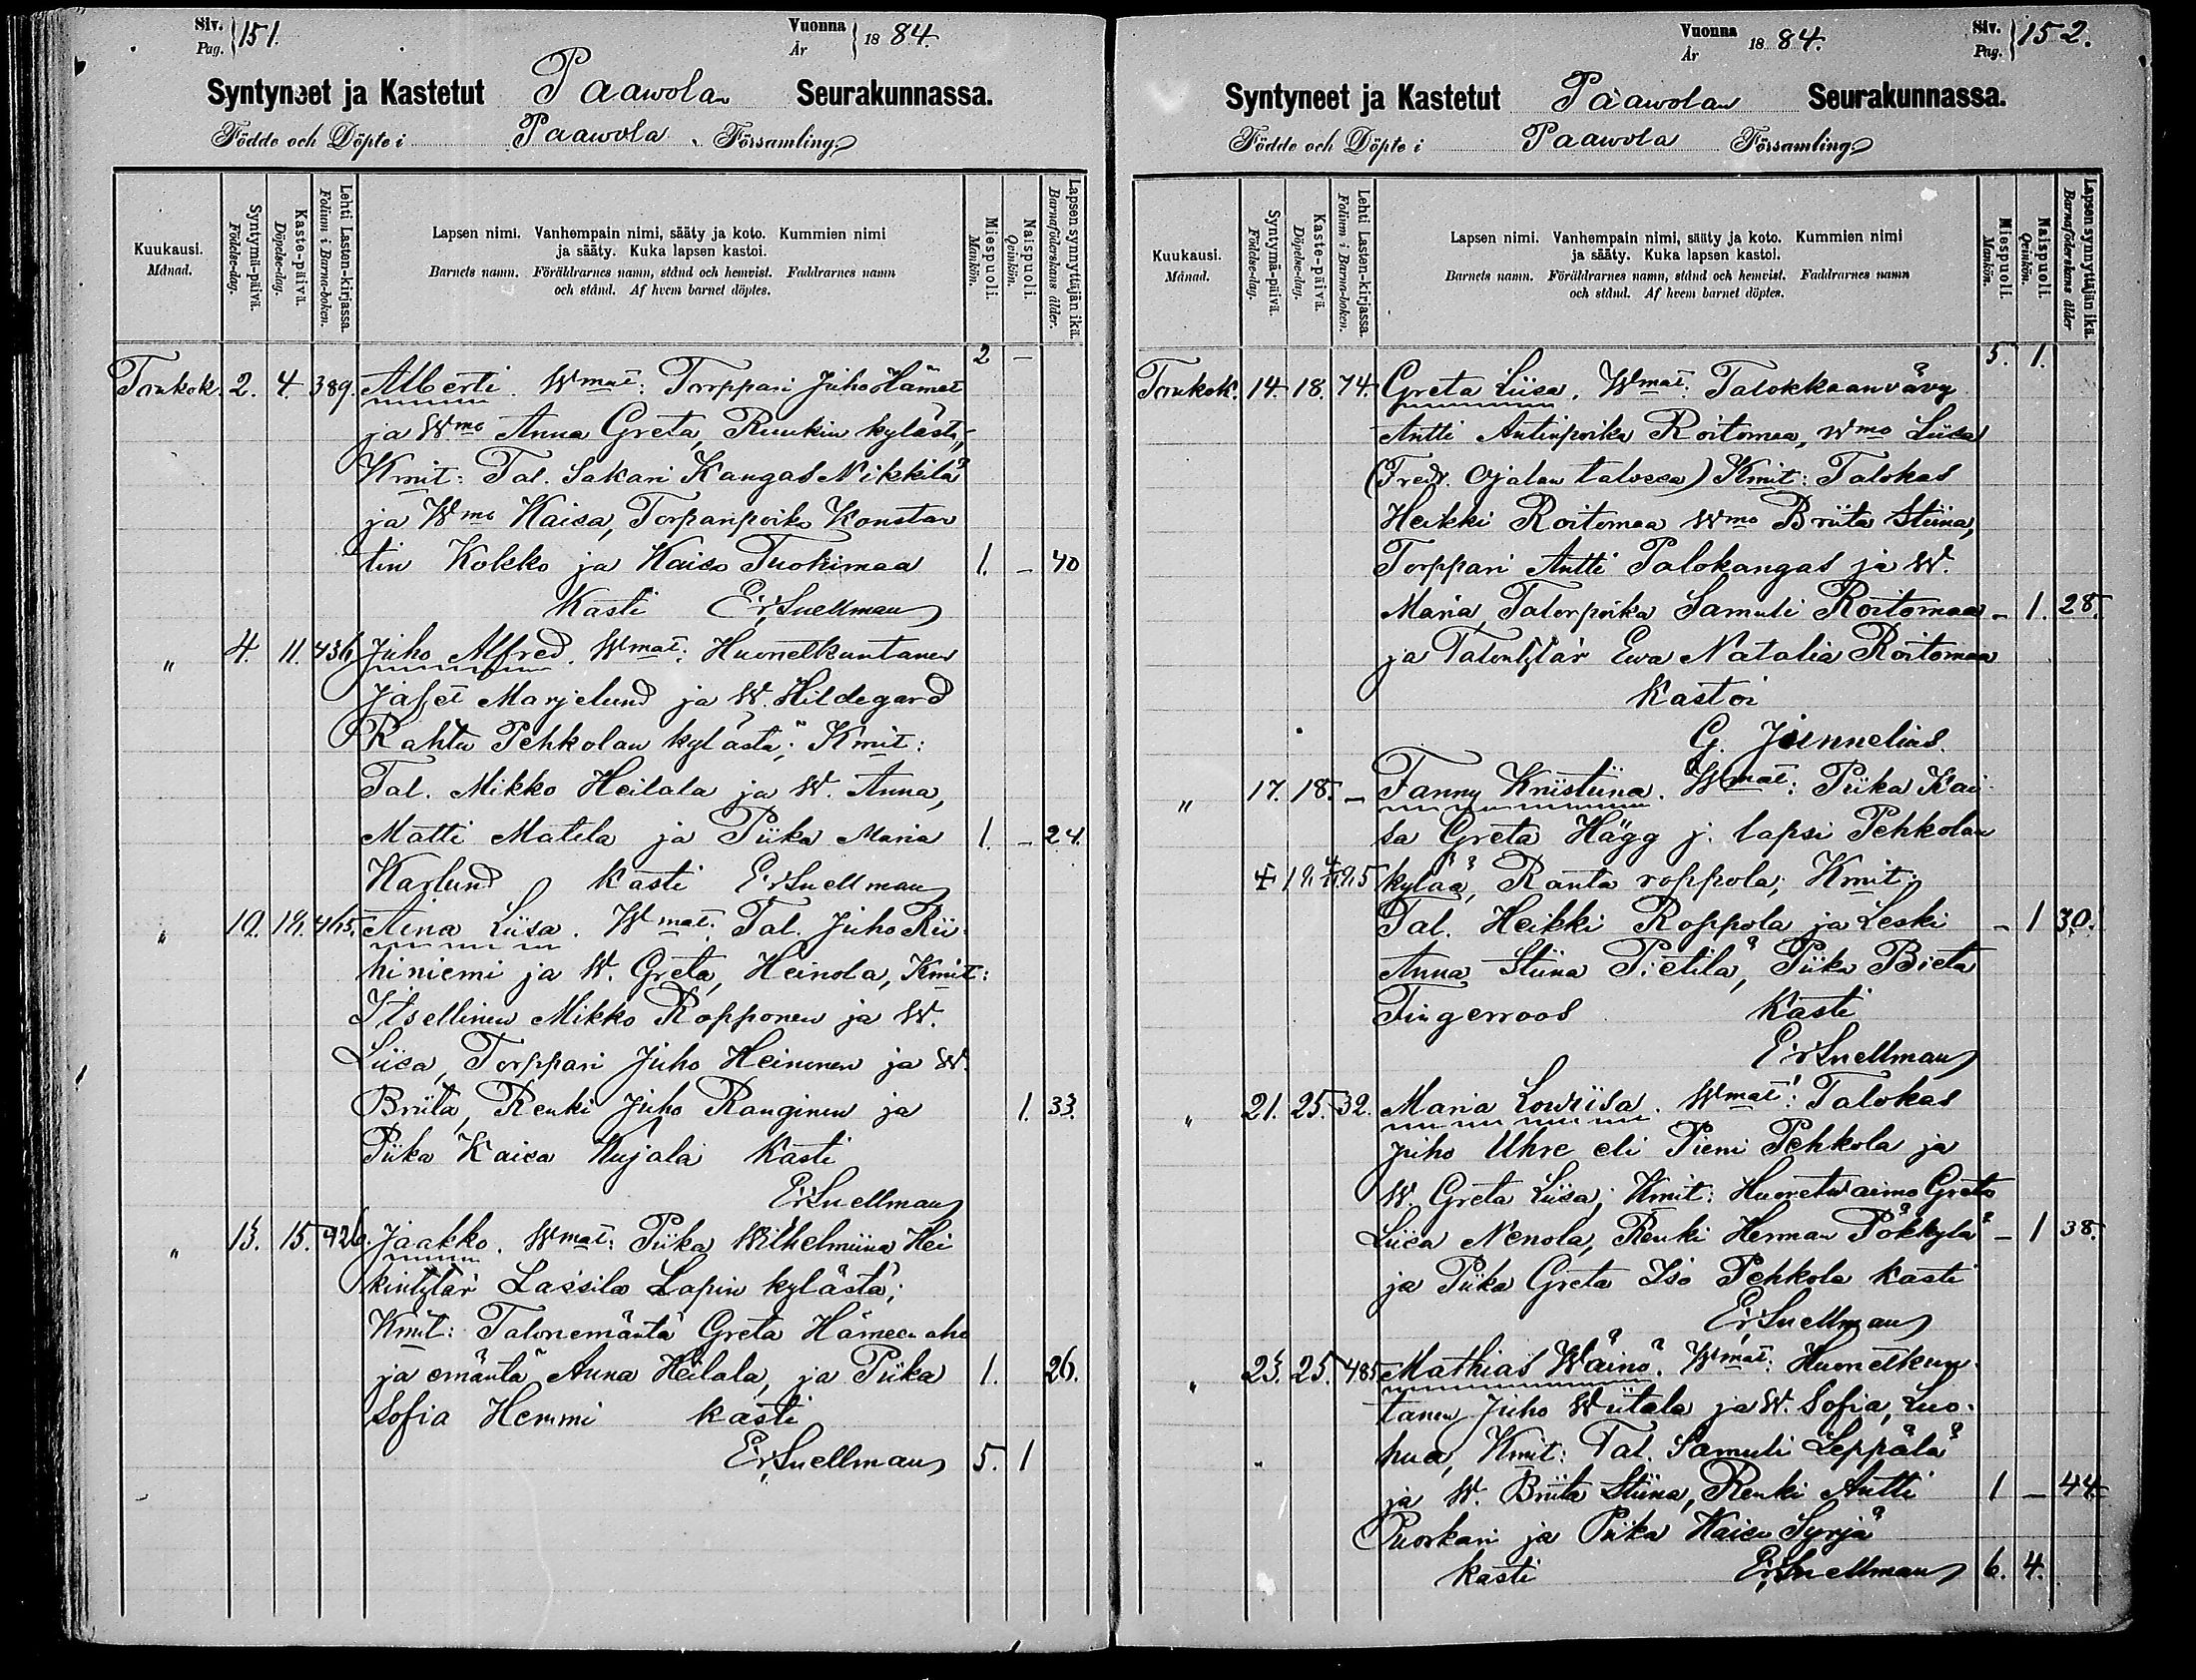 Siv. Pag. 151.
Vuonna År 1884.
Syntyneet ja Kastetut Paawolan Seurakunnassa.
Födde och Döpte i Paawola Församling
Kuukausi. Månad.
Syntymä-päivä. Födelse-dag.
Kaste-päivä. Döpelse-dag.
Lehti Lasten-kirjassa. Folium i Barna-boken.
Lapsen nimi. Vanhempain nimi, sääty ja koto. Kummien nimi
ja sääty. Kuka lapsen kastoi.
Barnets namn. Föräldrarnes namn, stånd och hemvist. Faddrarnes namn
och stånd. Af hvem barnet döptes.
Miespuoli. Mankön.
Naispuoli. Qvinkön.
Lapsen synnyttäjän ikä. Barnaföderskans ålder.
2 -
Toukok. 2. 4. 389. Alberti. Wmat: Torppari Juho Hämet
ja Wmo Anna Greta, Ruukin kylästä,
Kmit: Tal. Sakari Kangas Nikkilä
ja Wmo Kaisa, Torparipoika Konstan
tin Kokko ja Kaisa Tuokimaa 1. - 40
Kasti Er. Snellman
" 4. 11. 436 Juho Alfred. Wmat: Huonetkuntanen
Jafet Marjelund ja W. Hildegard
Rahtu Pehkolan kylästä; Kmit:
Tal. Mikko Heilala ja W. Anna,
Matti Matila ja Piika Maria 1. - 24.
Karlund Kasti Er Snellman
" 10. 18. 465. Aina Liisa. Wmat: Tal. Juho Rii-
hiniemi ja W. Greta, Heinola, Kmit:
Itsellinen Mikko Ropponen ja W.
Liisa, Torppari Juho Heinonen ja W.
Briita, Renki Juho Ranginen ja 1. 33.
Piika Kaisa Kujala Kasti
Er Snellman
" 13. 15. 926. Jaakko. Wmat: Piika Wilhelmiina Hei
kintytär Lassila Lapin kylästä;
Kmit: Talonemäntä Greta Hämeenaho
ja emäntä Anna Heilala, ja Piika 1. 26.
Sofia Hemmi kasti
Er. Snellman 5. 1
Vuonna År 1884.
Siv. Pag. 152.
Syntyneet ja Kastetut Paawolan Seurakunnassa.
Födde och Döpte i Paawola Församling
Kuukausi. Månad.
Syntymä-päivä. Födelse-dag.
Kaste-päivä. Döpelse-dag.
Lehti Lasten-kirjassa. Folium i Barna-boken.
Lapsen nimi. Vanhempain nimi, sääty ja koto. Kummien nimi
ja sääty. Kuka lapsen kastoi.
Barnets namn. Föräldrarnes namn, stånd och hemvist. Faddrarnes namn
och stånd. Af hvem barnet döptes.
Miespuoli. Mankön.
Naispuoli. Qvinkön.
Lapsen synnyttäjän ikä. Barnaföderskans ålder
5. 1.
Toukok. 14. 18. 74. Greta Liisa. Wmat: Talokkaanvävy
Antti Antinpoika Roitomaa, Wmo Liisa
(Fredr. Ojalan talossa) Kmit: Talokas
Heikki Roitomaa Wmo Briita Stiina,
Torppari Antti Palokangas ja W.
Maria, Talonpoika Samuli Roitomaa - 1. 28.
ja Talontytär Ewa Natalia Roitomaa
Kastoi
G. Junnelius.
" 17. 18. - Fanny Kristiina. Wmat: Piika Kai-
sa Greta Hägg j. lapsi Pehkolan
kylää, Ranta roppola; Kmit:
Tal. Heikki Roppola ja Leski - 1 30.
Anna Stiina Pietilä, Piika Bieta
Fingerroos Kasti
Er Snellman
" 21. 25. 32. Maria Lowiisa. Wmat: Talokas
Juho Uhre eli Pieni Pehkola ja
W. Greta Liisa; Kmit: Huonetwaimo Greta
Liisa Nenola, Renki Herman Pökkylä - 1 38.
ja Piika Greta Iso Pehkola kasti
Er Snellman
" 23. 25. 485 Mathias Wäinö. Wmat: Huonetkun-
tanen Juho Wiitala ja W. Sofia, Luo-
hua, Kmit: Tal. Samuli Leppälä
ja W. Briita Stiina, Renki Antti 1 - 44
Puorkari ja Piika Kaisa Syrjä
kasti Er. Snellman 6. 4.